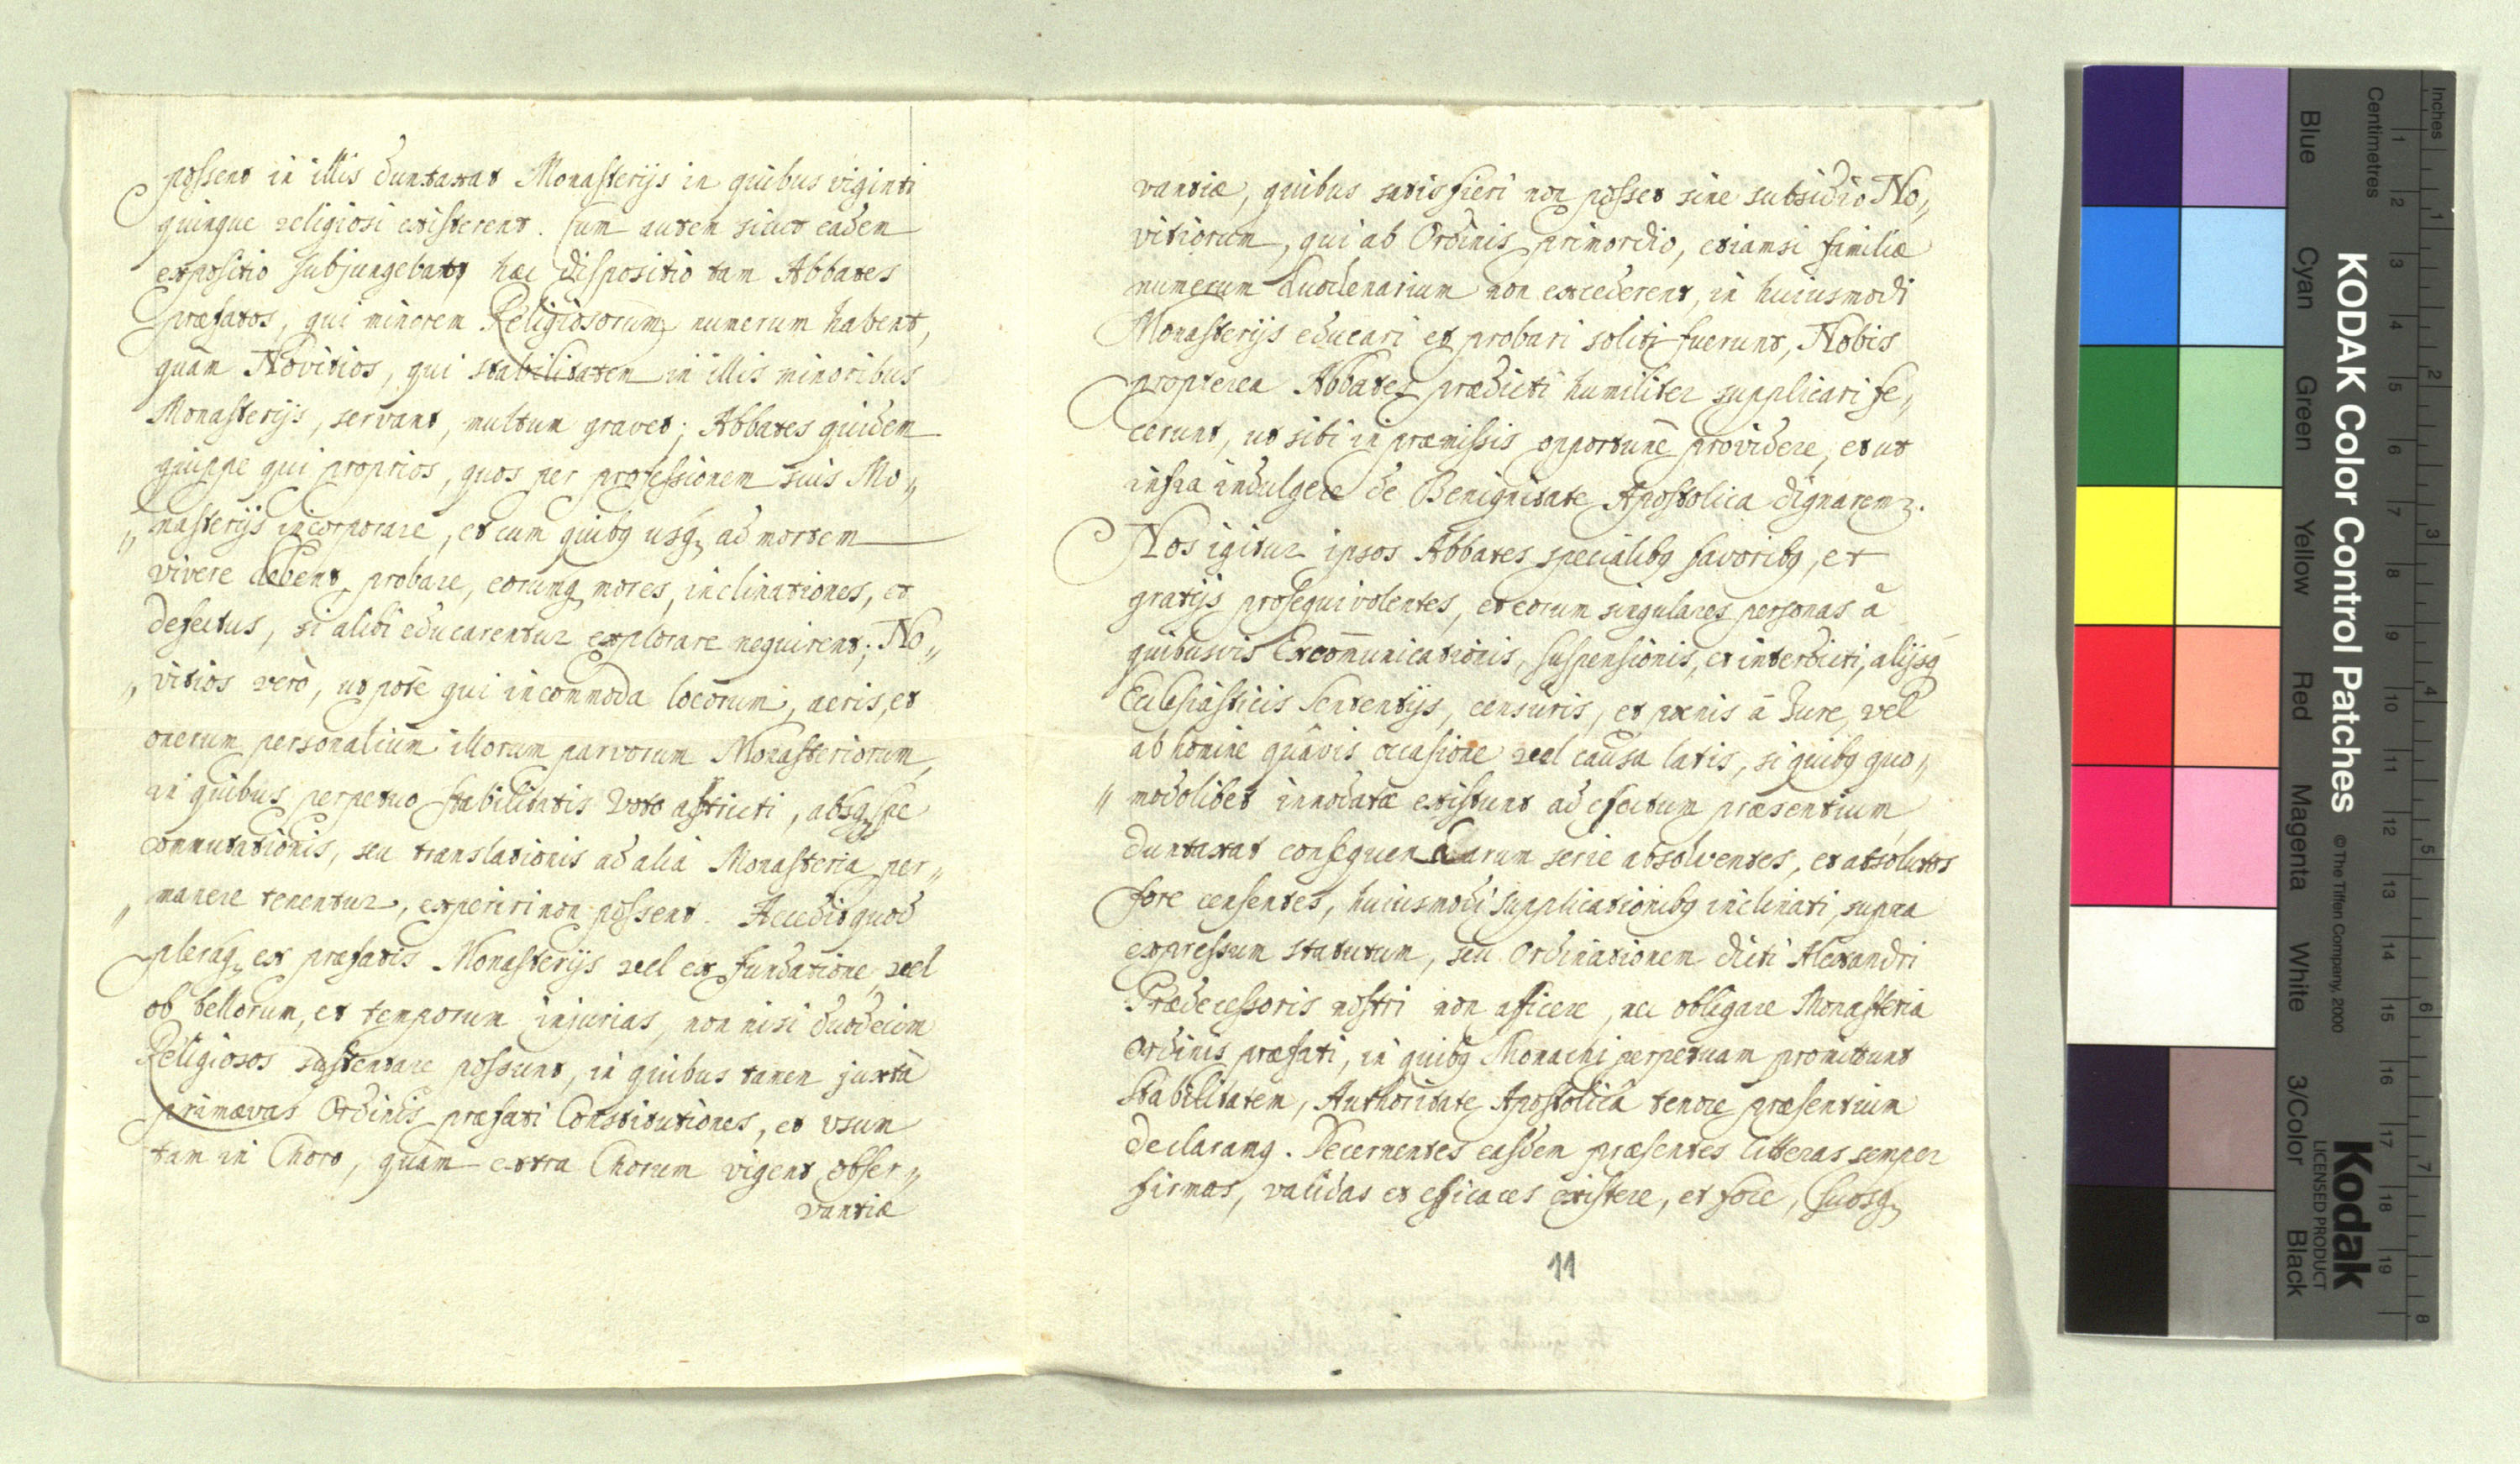 possent in illis duntaxat Monasterijs in quibus viginti
quinque religiosi existerent. Cum autem sicut eadem
expositio subjungebatq hæc dispositio tam Abbates
præfatos, qui minorem Religiosorum numerum habent,
quàm Novitios, qui stabilitatem in illis minoribus
Monasterijs, servant, multum gravet; Abbates quidem
quippe qui proprios, quos per professionem suis Mo„
„nasterijs incorporare, et cum quibq usq ad mortem
vivere debent, probare, eorumq mores, inclinationes, et
defectus, si alibi educarentur explorare nequirent; No„
„vitios verò, utpote qui incommoda locorum, aeris, et
onerum personalium illorum parvorum Monasteriorum,
in quibus perpetuo stabilitatis Voto astricti, absq spe
commutationis, seu translationis ad alia Monasteria per„
„manere tenentur, experiri non possent. Accedit quod
pleraq ex præfatis Monasterijs vel ex fundatione, vel
ob bellorum, et temporum injurias, non nisi duodecim
Religiosos sustentare possunt, in quibus tamen juxta
primævas Ordinis præfati Constitutiones, et usum
tam in Choro, quàm extra Chorum vigent obser„
vantiæ
vantiæ, quibus satisfieri non posset sine subsidio No„
vitiorum, qui ab Ordinis primordio, etiamsi familiæ
numerum duodenarium non excederent, in huiusmodi
Monasterijs educari et probari soliti fuerunt, Nobis
propterea Abbates prædicti humiliter supplicari fe„
cerunt, ut sibi in præmissis opportunè providere, et ut
infra indulgere de Benignitate Apostolica dignaremr.
Nos igitur ipsos Abbates specialibq favoribq, et
gratijs prosequi volentes, et eorum singulares personas à
quibusvis Excom̄unicationis, suspensionis, et interdicti, alijsq
Ecclesiasticis Sententijs, censuris, et pœnis à Jure, vel
ab homine quâvis occasione vel causa latis, si quibq quo„
„modolibet innodatæ existunt ad effectum præsentium
duntaxat consequendarum serie absolventes, et absolutos
fore censentes, huiusmodi supplicationibq inclinati, supra
expressum statutum, seu Ordinationem dicti Alexandri
Prædecessoris nostri non afficere, nec obligare Monasteria
Ordinis præfati, in quibq Monachi perpetuam promittunt
stabilitatem, Authoritate Apostolicâ tenore præsentium
declaramq. Decernentes easdem præsentes litteras semper
firmas, validas et efficaces existere, et fore, suosq
11
Inches
Centimetres
1 2 3 4 5 6 7 8 9 10 11 12 13 14 15 16 17 18 19
1 2 3 4 5 6 7 8
KODAK Color Control Patches © The Tiffen Company, 2000
Kodak
LICENSED PRODUCT
Blue Cyan Green Yellow Red Magenta White 3/Color Black